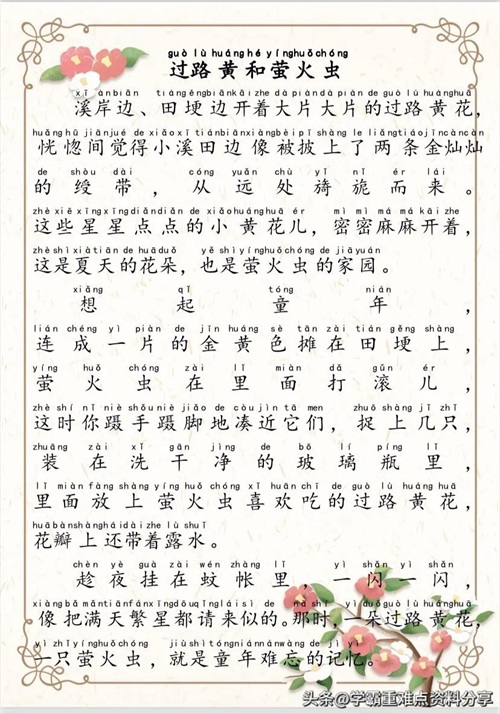 guò lù huáng hé yíng huǒ chóng
过路黄和萤火虫
xī àn biān tián gěng biān kāi zhe dà piàn dà piàn de guò lù huáng huā
溪岸边、田埂边开着大片大片的过路黄花,
huǎng hū jiān jué de xiǎo xī tián biān xiàng bèi pī shàng le liǎng tiáo jīn càn càn
恍惚间觉得小溪田边像被披上了两条金灿灿
de shòu dài cóng yuǎn chù yǐ nǐ ér lái
的绶带,从远处旖旎而来。
zhè xiē xīng xīng diǎn diǎn de xiǎo huáng huā ér mì mì má má kāi zhe
这些星星点点的小黄花儿,密密麻麻开着,
zhè shì xià tiān de huā duǒ yě shì yíng huǒ chóng de jiā yuán
这是夏天的花朵,也是萤火虫的家园。
xiǎng qǐ tóng nián
想起童年,
lián chéng yì piàn de jīn huáng sè tān zài tián gěng shàng
连成一片的金黄色摊在田埂上,
yíng huǒ chóng zài lǐ miàn dǎ gǔn ér
萤火虫在里面打滚儿,
zhè shí nǐ niè shǒu niè jiǎo de còu jìn tā men zhuō shàng jǐ zhī
这时你蹑手蹑脚地凑近它们,捉上几只,
zhuāng zài xǐ gān jìng de bō lí píng lǐ
装在洗干净的玻璃瓶里,
lǐ miàn fàng shàng yíng huǒ chóng xǐ huān chī de guò lù huáng huā
里面放上萤火虫喜欢吃的过路黄花,
huā bàn shàng hái dài zhe lù shuǐ
花瓣上还带着露水。
chèn yè guà zài wén zhàng lǐ yì shǎn yì shǎn
趁夜挂在蚊帐里,一闪一闪,
xiàng bǎ mǎn tiān fán xīng dōu qǐng lái sì de nà shí yì duǒ guò lù huáng huā
像把满天繁星都请来似的。那时,一朵过路黄花,
yì zhī yíng huǒ chóng jiù shì tóng nián nán wàng de jì yì
一只萤火虫,就是童年难忘的记忆。
头条@学霸重难点资料分享